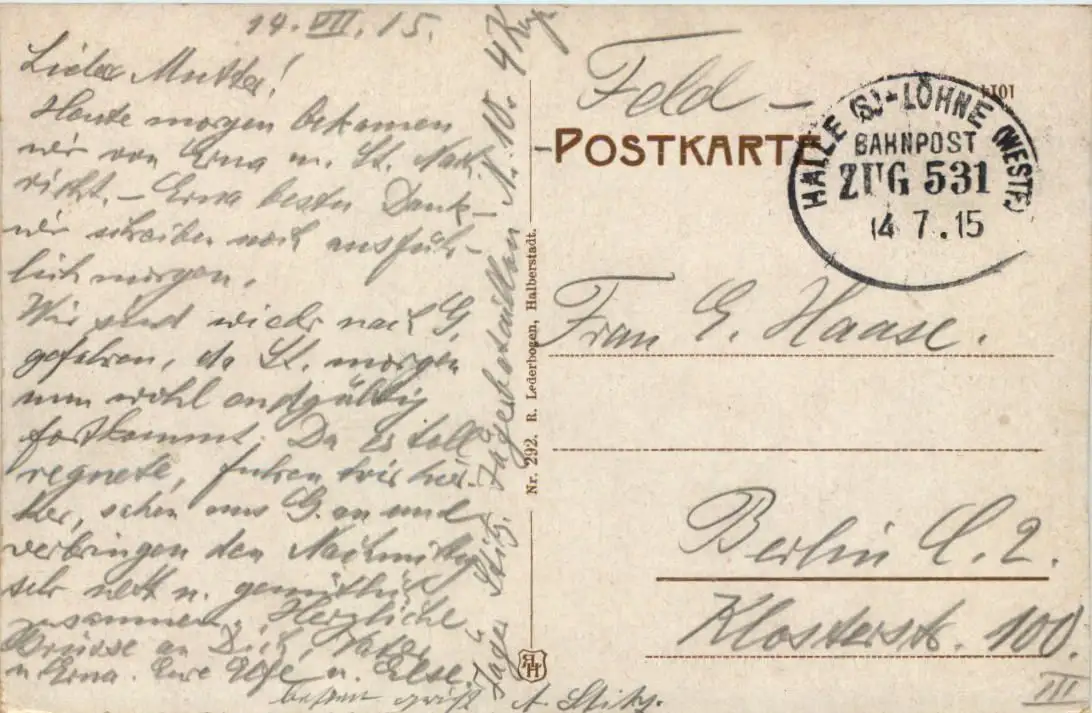 14. VII. 15.
Liebe Mutter!
Heute morgen bekamen
wir von Erna u. St. Nach-
richt. – Erna besten Dank –
wir schreiben noch ausführ-
lich morgen.
Wir sind wieder nach G.
gefahren, da St. morgen
nun wohl endgültig
fortkommt. Da es toll
regnete, fuhren wir hier-
her, sehen uns G. an und
verbringen den Nachmittag
sehr nett u. gemütlich
zusammen. Herzliche
Grüsse an Dich, Vater
u. Erna. Eure u. Else.
besten
A. Stitz.
Jäger Stitz. Jägerbataillon N. 10. 4 Kp.
Nr. 292. R. Lederbogen, Halberstadt.
Feld –
POSTKARTE
1014
HALLE (S)-LÖHNE (WESTF.)
BAHNPOST
ZUG 531
14 7. 15
Frau E. Haase.
Berlin C. 2.
Klosterstr. 100.
III